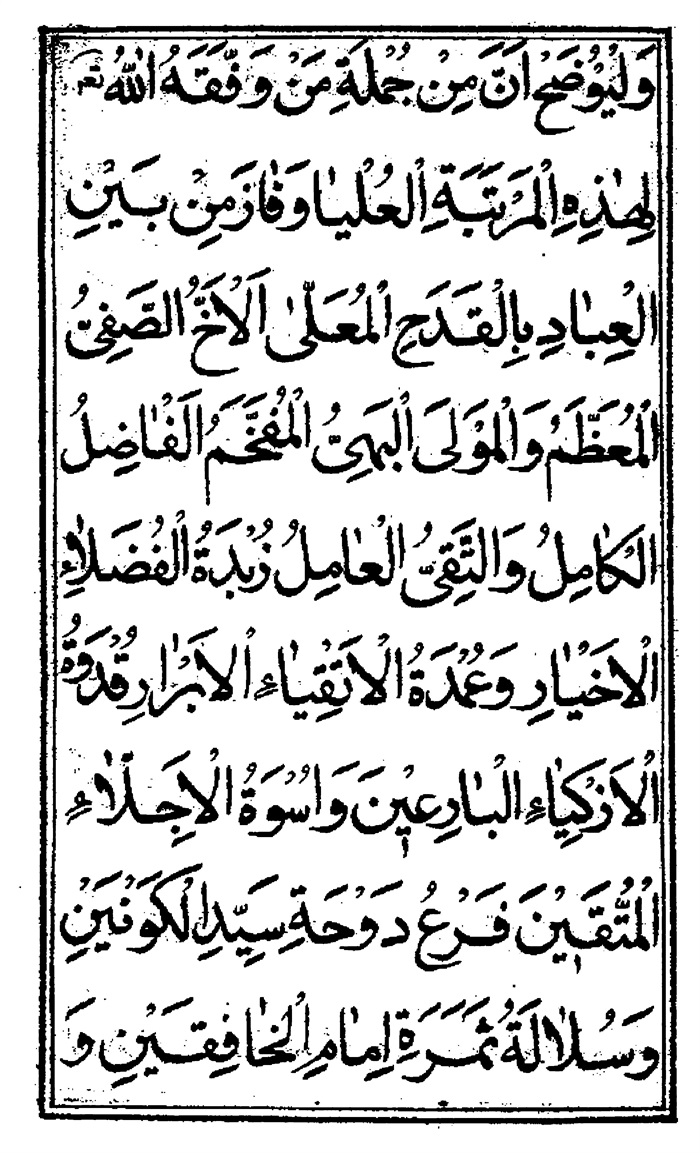 وَلِيُوضَحْ اَنَّ مِنْ جُمْلَةِ مَنْ وَفَّقَهُ اللهُ تعم
لِهٰذِهِ الْمَرْتَبَةِ الْعُلْيَا وَفَازَ مِنْ بَيْنِ
الْعِبَادِ بِالْقَدَحِ الْمُعَلّٰى اَلْاَخُّ الصَّفِىُّ
الْمُعَظَّمُ وَالْمَوْلَى الْبَهِىُّ الْمُفَخَّمُ الْفَاضِلُ
الْكَامِلُ وَالتَّقِىُّ الْعَامِلُ زُبْدَةُ الْفُضَلَاءِ
الْاَخْيَارِ وَعُمْدَةُ الْاَتْقِيَاءِ الْاَبْرَارِ قُدْوَةُ
الْاَزْكِيَاءِ الْبَارِعِيْنَ وَاُسْوَةُ الْاَجِلَّاءِ
الْمُتَّقِيْنَ فَرْعُ دَوْحَةِ سَيِّدِ الْكَوْنَيْنِ
وَسُلَالَةُ ثَمَرَةِ اِمَامِ الْخَافِقَيْنِ وَ